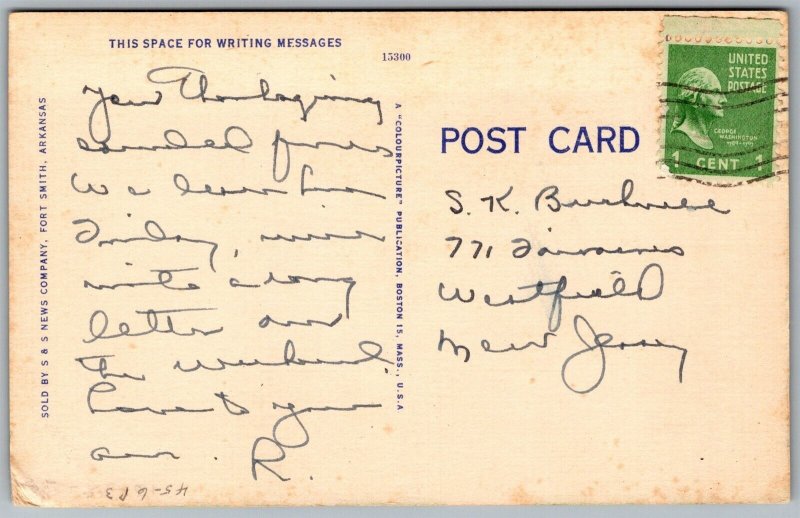 THIS SPACE FOR WRITING MESSAGES
15300
Your Thanksgiving
sounded fine
We leave here
Friday,
write a long
letter over
the weekend.
Love to you
all. R.
45-6 P3
SOLD BY S & S NEWS COMPANY, FORT SMITH, ARKANSAS
A "COLOURPICTURE" PUBLICATION, BOSTON 15, MASS., U.S.A
POST CARD
UNITED
STATES
POSTAGE
GEORGE
WASHINGTON
1789-1797
1 CENT 1
S. K.
771
Westfield
New Jersey